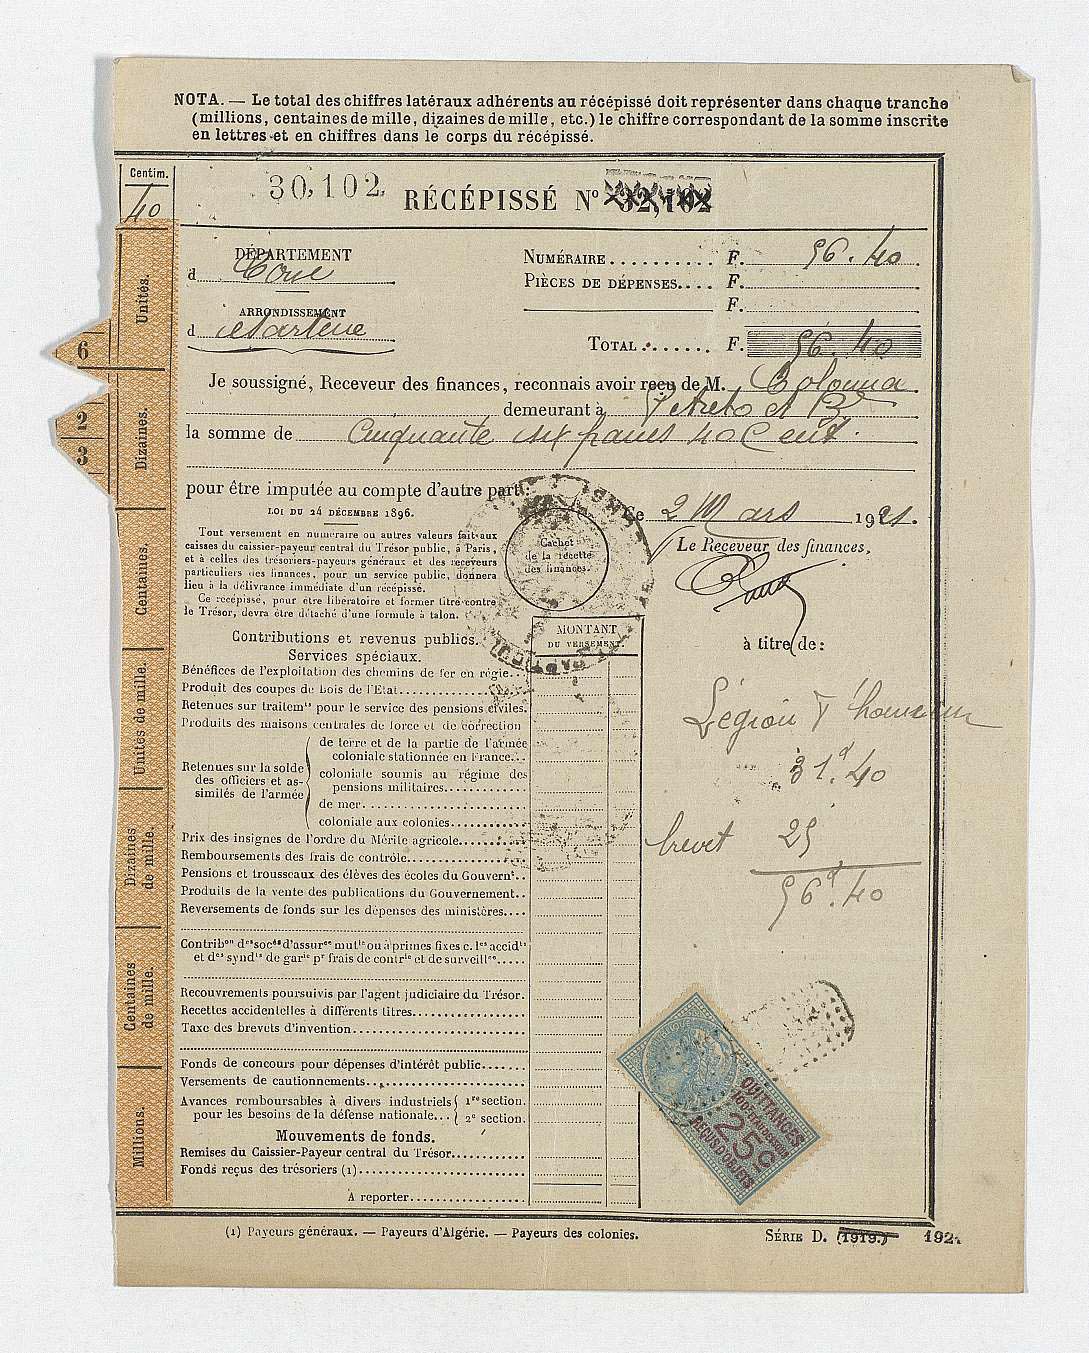 NOTA. — Le total des chiffres latéraux adhérents au récépissé doit représenter dans chaque tranche
(millions, centaines de mille, dizaines de mille, etc.) le chiffre correspondant de la somme inscrite
en lettres et en chiffres dans le corps du récépissé.
Centim.
40
30,102.
RÉCÉPISSÉ N° 32,102
DÉPARTEMENT
d Corse
ARRONDISSEMENT
d Sartène
NUMÉRAIRE .......... F. 56.40
PIÈCES DE DÉPENSES.... F.
F.
TOTAL ....... F. 56.40
Je soussigné, Receveur des finances, reconnais avoir reçu de M. Colonna
demeurant à Petreto et B
la somme de Cinquante six francs 40 Cent.
pour être imputée au compte d'autre part.
Ce 2 Mars 1921.
LOI DU 24 DÉCEMBRE 1896.
Tout versement en numéraire ou autres valeurs fait aux
caisses du caissier-payeur central du Trésor public, à Paris,
et à celles des trésoriers-payeurs généraux et des receveurs
particuliers des finances, pour un service public, donnera
lieu à la délivrance immédiate d'un récépissé.
Ce récépissé, pour être libératoire et former titre contre
le Trésor, devra être détaché d'une formule à talon.
Cachet
de la recette
des finances.
Le Receveur des finances,
à titre de:
MONTANT
DU VERSEMENT
Contributions et revenus publics.
Services spéciaux.
Bénéfices de l'exploitation des chemins de fer en régie...
Produit des coupes de bois de l'État
Retenues sur traitemts pour le service des pensions civiles.
Produits des maisons centrales de force et de correction
Retenues sur la solde des officiers et assimilés de l'armée
de terre et de la partie de l'armée
coloniale stationnée en France...
coloniale soumis au régime des
pensions militaires
de mer
coloniale aux colonies
Prix des insignes de l'ordre du Mérite agricole
Remboursements des frais de contrôle
Pensions et trousseaux des élèves des écoles du Gouvernt..
Produits de la vente des publications du Gouvernement..
Reversements de fonds sur les dépenses des ministères....
Contribon des socés d'assurces mutles ou à primes fixes c. les accidts
et des syndts de garie pr frais de contrle et de surveillce.....
Recouvrements poursuivis par l'agent judiciaire du Trésor.
Recettes accidentelles à différents titres
Taxe des brevets d'invention
Fonds de concours pour dépenses d'intérêt public
Versements de cautionnements
Avances remboursables à divers industriels { 1re section.
pour les besoins de la défense nationale... { 2e section.
Mouvements de fonds.
Remises du Caissier-Payeur central du Trésor
Fonds reçus des trésoriers (1)
A reporter
Légion d'honneur
31.40
brevet 25
56.40
QUITTANCES
REÇUS D'OBJETS
25c
Unités.
6
Dizaines.
2
3
Centaines.
Unités de mille.
Dizaines
de mille.
Centaines
de mille.
Millions.
(1) Payeurs généraux. — Payeurs d'Algérie. — Payeurs des colonies.
SÉRIE D. (1919.) 1921